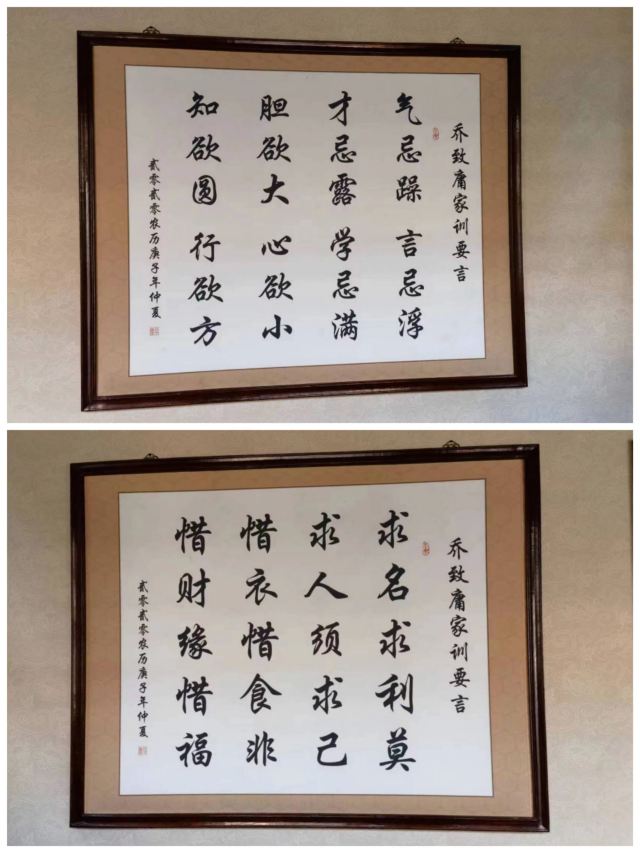 乔致庸家训要言
气忌躁言忌浮
才忌露学忌满
胆欲大心欲小
知欲圆行欲方
贰零贰零农历庚子年仲夏
乔致庸家训要言
求名求利莫
求人须求己
惜衣惜食非
惜财缘惜福
贰零贰零农历庚子年仲夏